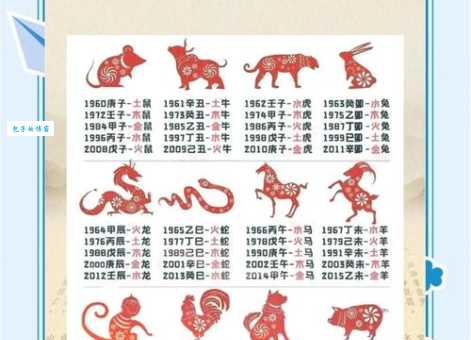 1960庚子-土鼠 1961辛丑-土牛 1962壬子-水虎 1963癸卯-水兔
1972壬子-木鼠 1973癸丑-木牛 1974甲子-木虎 1975乙卯-木兔
1984甲子-金鼠 1985乙丑-金牛 1986丙子-火虎 1987丁卯-火兔
1996丙子-水鼠 1997丁丑-水牛 1998戊子-土虎 1999己卯-土兔
2008戊子-火鼠 2009己丑-火牛 2010庚子-金虎 2011辛卯-金兔
1964甲辰-火龙 1965乙巳-火蛇 1966丙午-水马 1967丁未-水羊
1976丙辰-土龙 1977丁巳-土蛇 1978戊午-火马 1979己未-火羊
1988戊辰-木龙 1989己巳-木蛇 1990庚午-土马 1991辛未-土羊
2000庚辰-金龙 2001辛巳-金蛇 2002壬午-木马 2003癸未-木羊
2012壬辰-水龙 2013癸巳-水蛇 2014甲午-金马 2015乙未-金羊